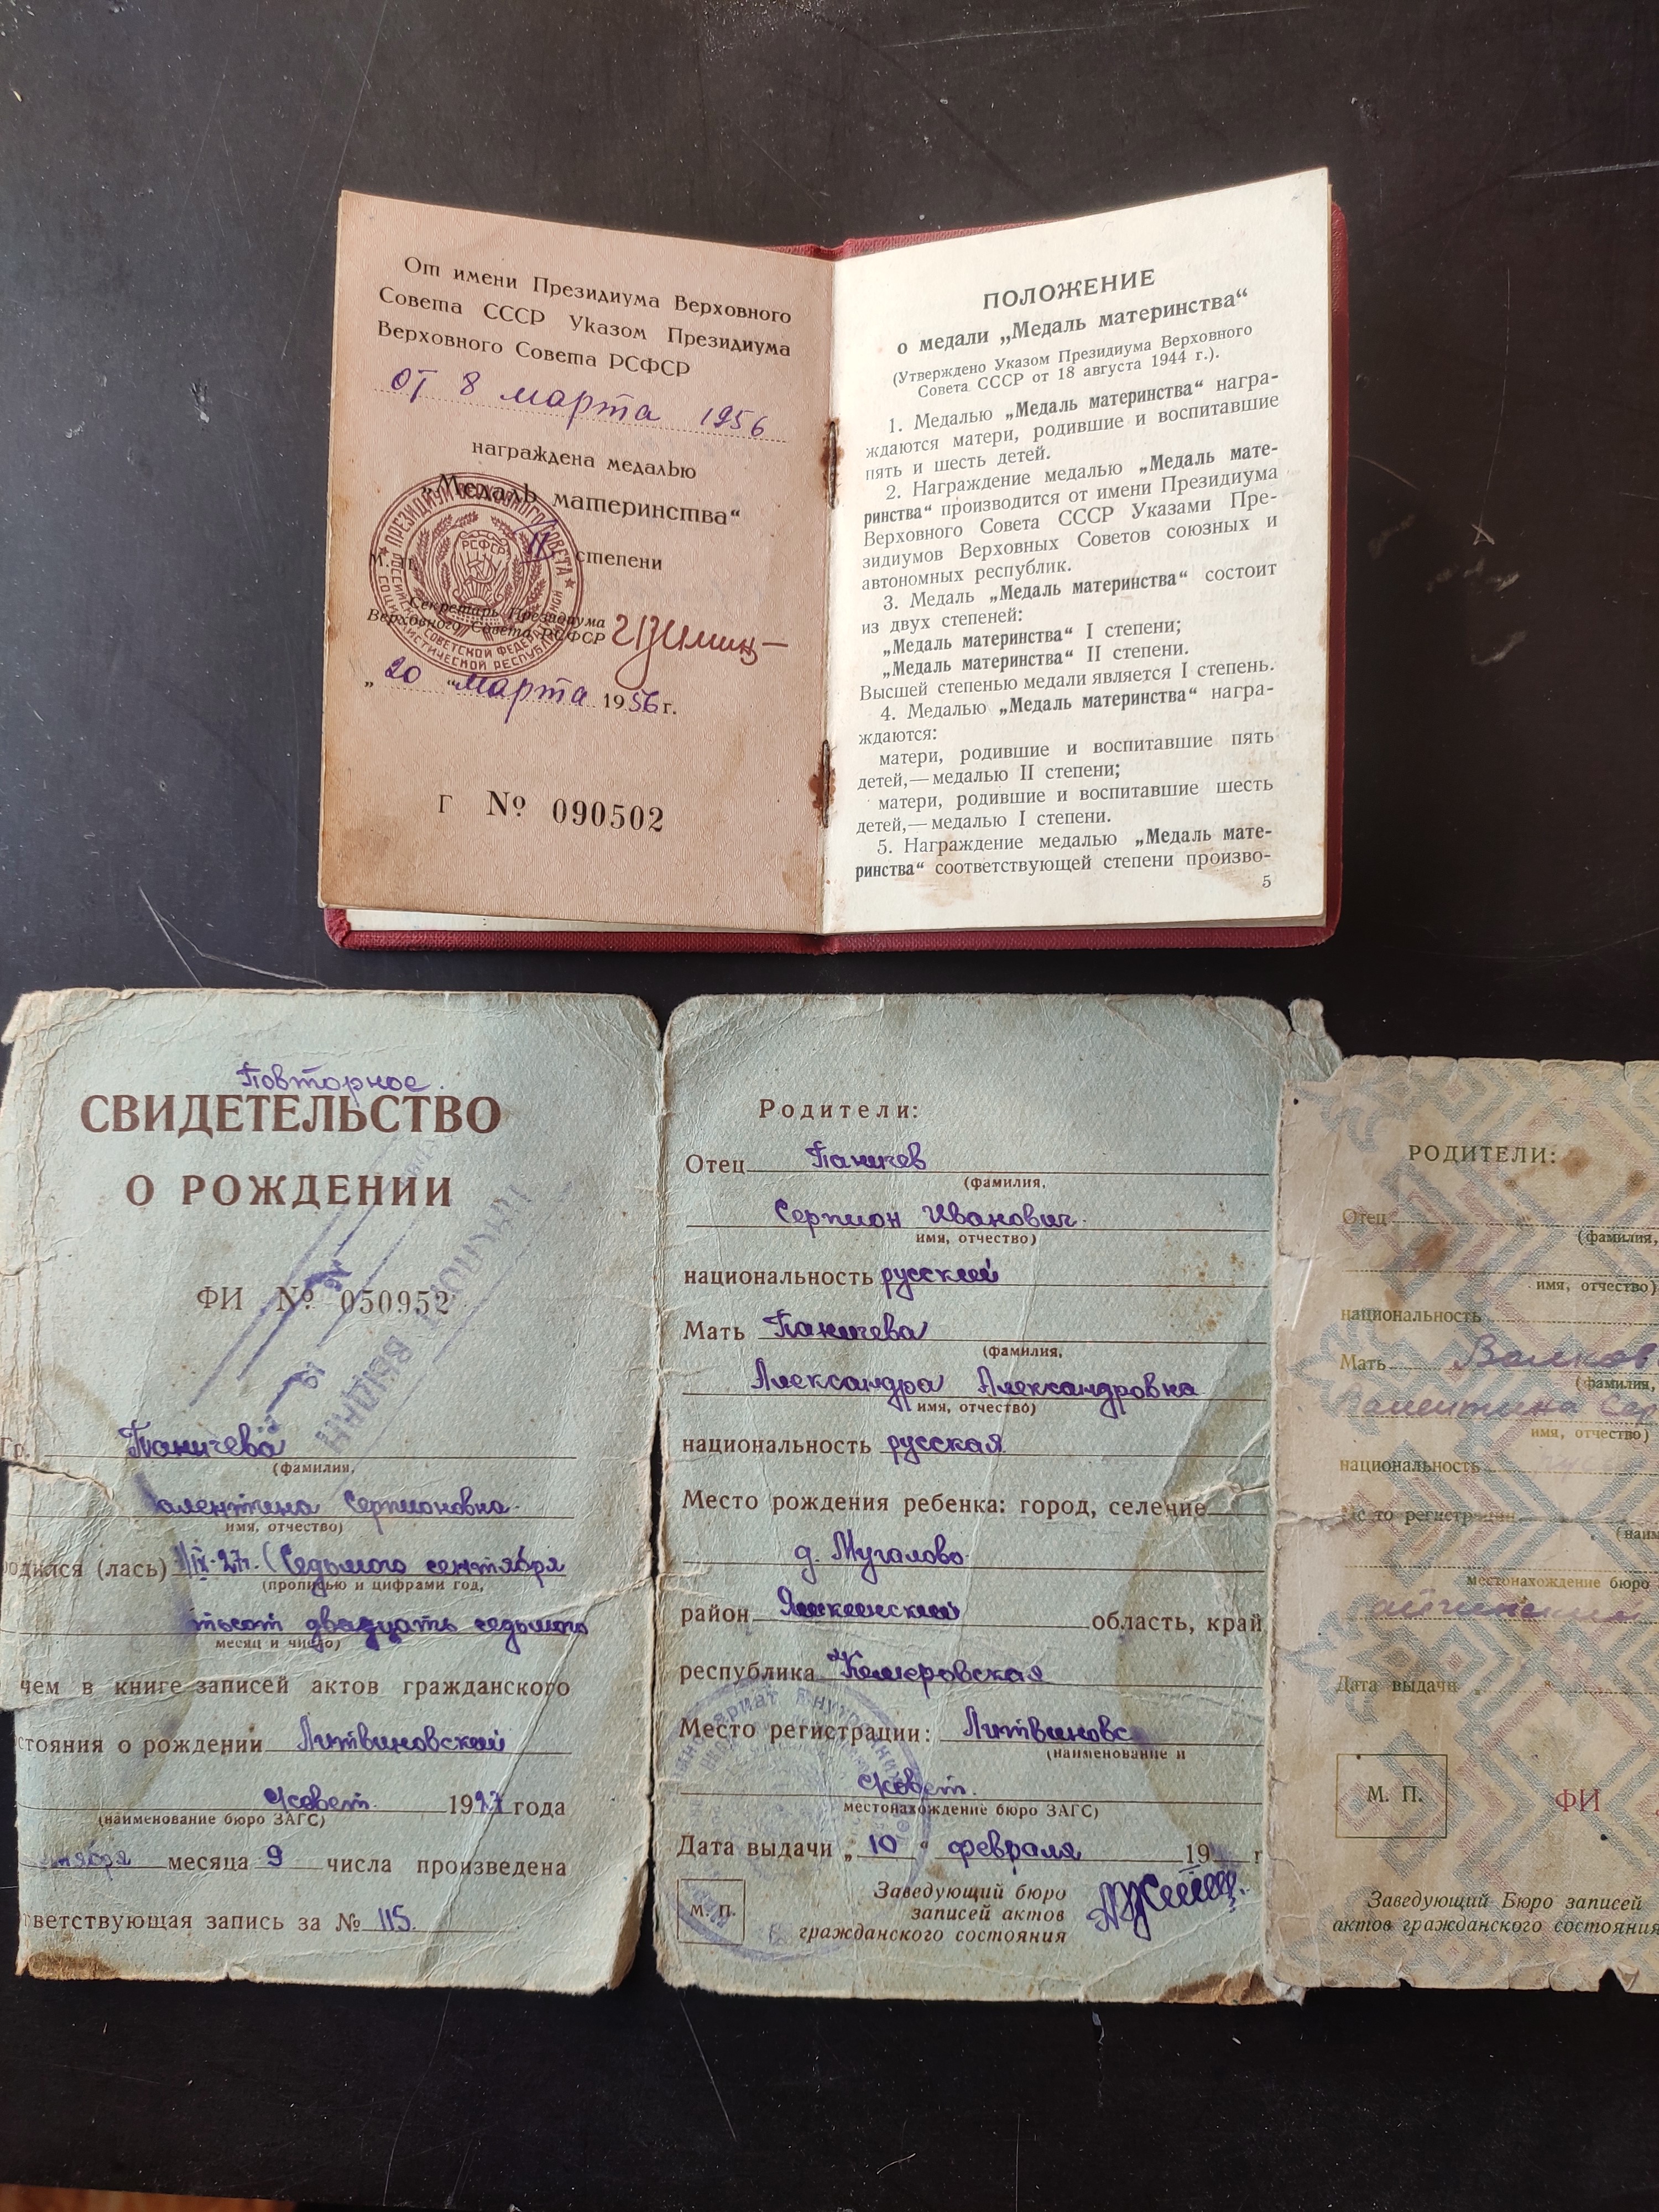 От имени Президиума Верховного
Совета СССР Указом Президиума
Верховного Совета РСФСР
от 8 марта 1956
награждена медалью
„Медаль материнства“
II степени
М. П.
Секретарь Президиума
Верховного Совета РСФСР
„20 “ марта 1956 г.
Г № 090502
ПОЛОЖЕНИЕ
о медали „Медаль материнства“
(Утверждено Указом Президиума Верховного
Совета СССР от 18 августа 1944 г.).
1. Медалью „Медаль материнства“ награ-
ждаются матери, родившие и воспитавшие
пять и шесть детей.
2. Награждение медалью „Медаль мате-
ринства“ производится от имени Президиума
Верховного Совета СССР Указами Пре-
зидиумов Верховных Советов союзных и
автономных республик.
3. Медаль „Медаль материнства“ состоит
из двух степеней:
„Медаль материнства“ I степени;
„Медаль материнства“ II степени.
Высшей степенью медали является I степень.
4. Медалью „Медаль материнства“ награ-
ждаются:
матери, родившие и воспитавшие пять
детей,—медалью II степени;
матери, родившие и воспитавшие шесть
детей,—медалью I степени.
5. Награждение медалью „Медаль мате-
ринства“ соответствующей степени произво-
5
Повторное
СВИДЕТЕЛЬСТВО
О РОЖДЕНИИ
ФИ № 050952
ПАСПОРТ ВЫДАН
Гр. Паничева
(фамилия,
алентина Серпионовна
имя, отчество)
одился (лась) IX-27г. (Седьмого сентября
(прописью и цифрами год,
тьсот двадцать седьмого
месяц и число)
чем в книге записей актов гражданского
стояния о рождении Литвиновский
совет 1927 года
(наименование бюро ЗАГС)
месяца 9 числа произведена
ветствующая запись за № 115.
Родители:
Отец Паничев
(фамилия,
Серпион Иванович
имя, отчество)
национальность русский
Мать Паничева
(фамилия,
Александра Александровна
имя, отчество)
национальность русская
Место рождения ребенка: город, селение
д. Мугалово
район Яшкинский область, край
республика Кемеровская
Место регистрации: Литвиновс
(наименование и
совет
местонахождение бюро ЗАГС)
Дата выдачи „ 10 “ февраля 19 г
М. П.
Заведующий бюро
записей актов
гражданского состояния
РОДИТЕЛИ:
Отец
(фамилия,
имя, отчество)
национальность
Мать Волков
(фамилия,
Валентина Сер
имя, отчество)
национальность
Место регистрации
(наим
местонахождение бюро
Дата выдачи
М. П.
ФИ
Заведующий Бюро записей
актов гражданского состояния